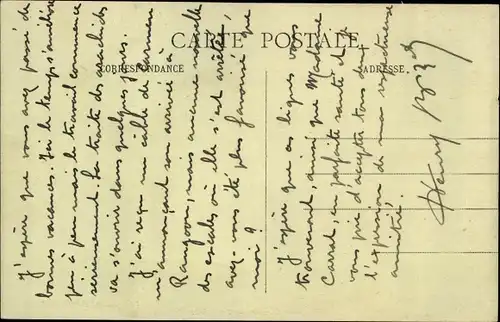 CARTE POSTALE
CORRESPONDANCE
ADRESSE.
J'espère que vous avez passé de
bonnes vacances. Ici le temps s'améliore
peu à peu mais le travail commence
sérieusement. La traite des arachides
va s'ouvrir dans quelques jours.
J'ai reçu un câble de Carmen
m'annonçant son arrivée à
Rangoon, mais aucune nouvelle
des escales où elle s'est arrêtée,
avez-vous été plus favorisé que
moi ?
J'espère que ces lignes vous
trouveront, ainsi que Madame
Carrat, en parfaite santé et
vous prie d'accepter tous deux
l'expression de ma respectueuse
amitié,
Henry